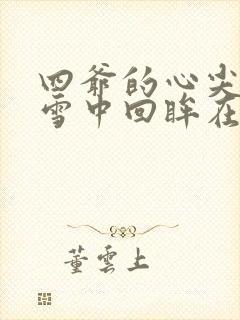 四爷的心尖
雪中回眸在
董雲上